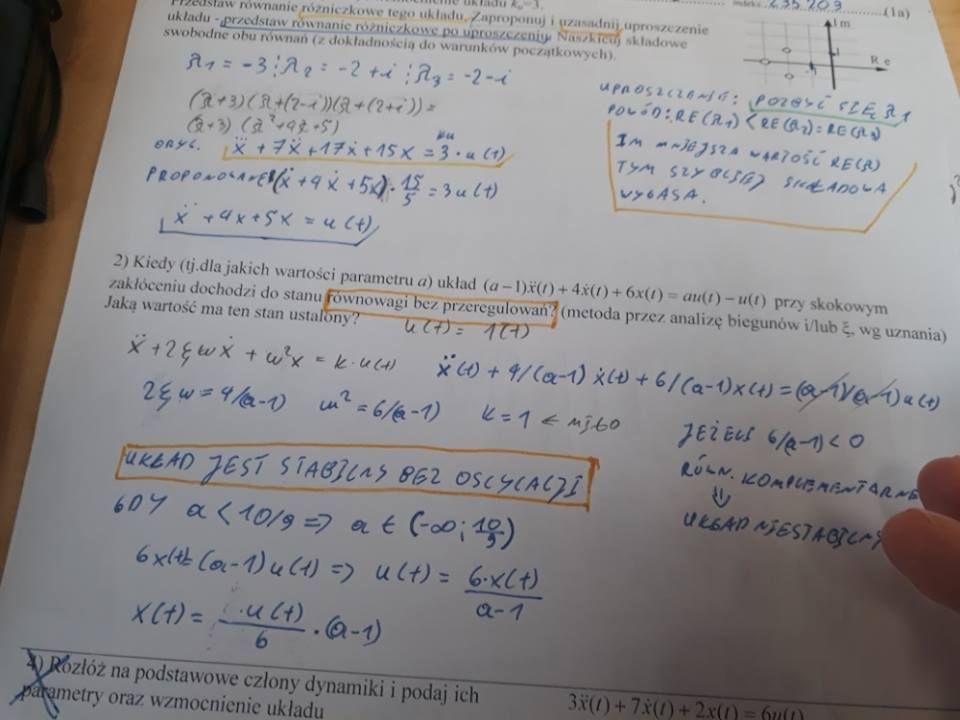 układu kₒ=3.
indeks 235 209 (1a)
Przedstaw równanie różniczkowe tego układu. Zaproponuj i uzasadnij uproszczenie
układu - przedstaw równanie różniczkowe po uproszczeniu. Naszkicuj składowe
swobodne obu równań (z dokładnością do warunków początkowych).
Im
Re
λ1 = -3 ; λ2 = -2+i ; λ3 = -2-i
(λ+3)(λ+(2-i))(λ+(2+i)) =
(λ+3)(λ²+4λ+5)
ORYG. ẍ + 7ẍ + 17ẋ + 15x = 3·u(t)
ku
(ẋ + 4ẋ + 5x)·15/5 = 3u(t)
ẍ + 4x + 5x = u(t)
UPROSZCZENIE: POZBYĆ SIĘ λ1
POWÓD: RE(λ1) < RE(λ2) = RE(λ3)
IM MNIEJSZA WARTOŚĆ RE(λ)
TYM SZYBCIEJ SKŁADOWA
WYGASA.
2) Kiedy (tj.dla jakich wartości parametru a) układ (a−1)ẍ(t) + 4ẋ(t) + 6x(t) = au(t) − u(t) przy skokowym
zakłóceniu dochodzi do stanu równowagi bez przeregulowań? (metoda przez analizę biegunów i/lub ξ, wg uznania)
Jaką wartość ma ten stan ustalony?
u(t) = 1(t)
ẍ + 2ξωẋ + ω²x = k·u(t)
ẍ(t) + 4/(a-1) ẋ(t) + 6/(a-1)x(t) = (a-1)/(a-1)u(t)
2ξω = 4/(a-1) ω² = 6/(a-1) k = 1 ←
JEŻELI 6/(a-1) < 0
RÓWN. KOMPLEMENTARNE
⇓
UKŁAD NIESTABILNY
UKŁAD JEST STABILNY BEZ OSCYLACJI
GDY a < 10/9 => a ∈ (-∞; 10/9)
6x(t) = (a-1)u(t) => u(t) = 6·x(t)/a-1
x(t) = ·u(t)/6 · (a-1)
4) Rozłóż na podstawowe człony dynamiki i podaj ich
parametry oraz wzmocnienie układu
3ẍ(t) + 7ẋ(t) + 2x(t) = 6u(t)